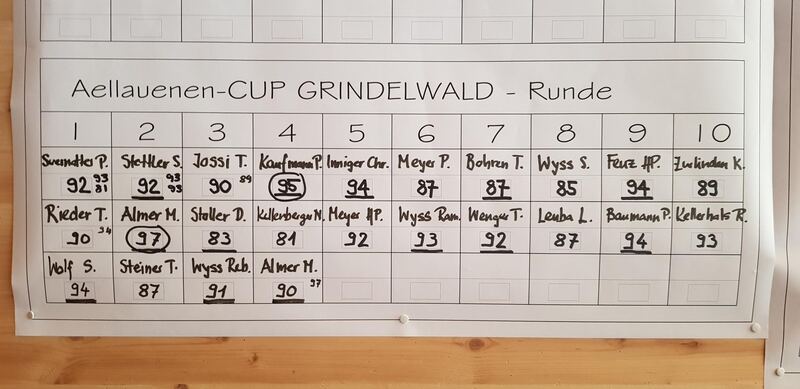 Aellauenen-CUP GRINDELWALD - Runde
1 2 3 4 5 6 7 8 9 10
Stettler S. Jossi T. Kaufmann P. Inniger Chr. Meyer P. Bohren T. Wyss S. Feuz HP. Zurlinden K.
92 93 81 92 93 93 90 89 95 94 87 87 85 94 89
Rieder T. Almer M. Staller D. Kellenberger N. Meyer HP. Wyss Ram. Wenger T. Leuba L. Baumann P. Kellerhals R.
90 94 97 83 81 92 93 92 87 94 93
Wolf S. Steiner T. Wyss Reb. Almer M.
94 87 91 90 97